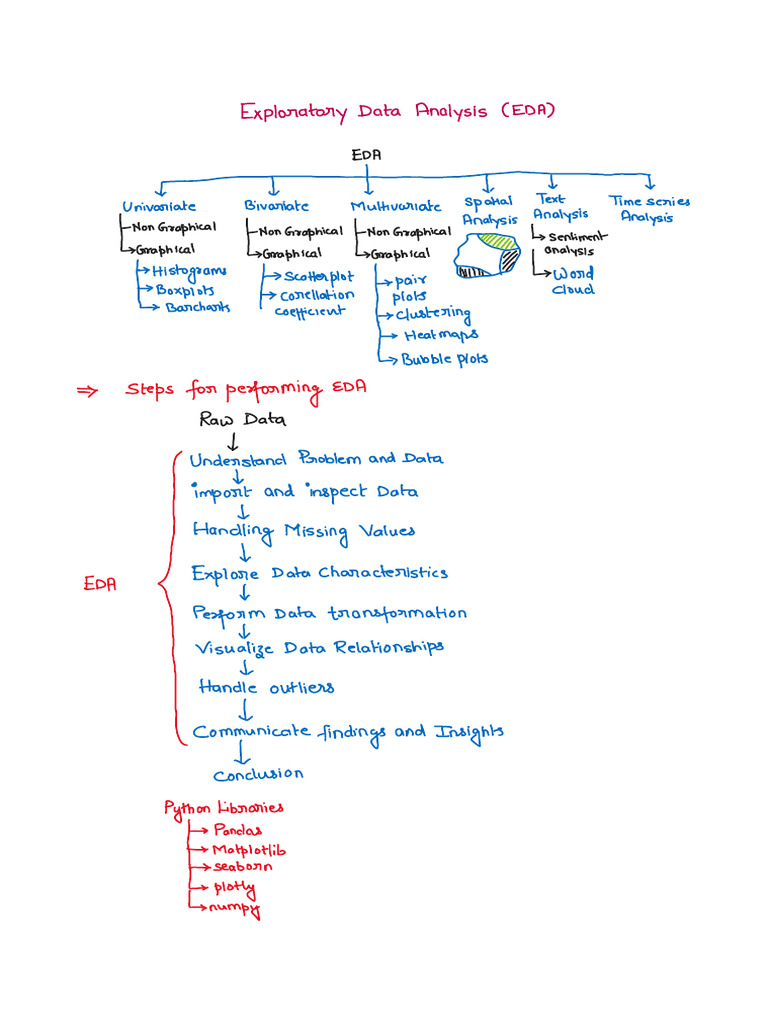 Exploratory Data Analysis (EDA)
EDA
Univariate
Non Graphical
Graphical
Histograms
Boxplots
Barcharts
Bivariate
Non Graphical
Graphical
Scatterplot
Corellation
coefficient
Multivariate
Non Graphical
Graphical
pair
plots
clustering
Heatmaps
Bubble plots
Spatial
Analysis
Text
Analysis
Sentiment
analysis
Word
cloud
Time series
Analysis
⇒ Steps for performing EDA
Raw Data
EDA
Understand Problem and Data
import and inspect Data
Handling Missing Values
Explore Data Characteristics
Perform Data transformation
Visualize Data Relationships
Handle outliers
Communicate findings and Insights
Conclusion
Python Libraries
Pandas
Matplotlib
seaborn
plotly
numpy